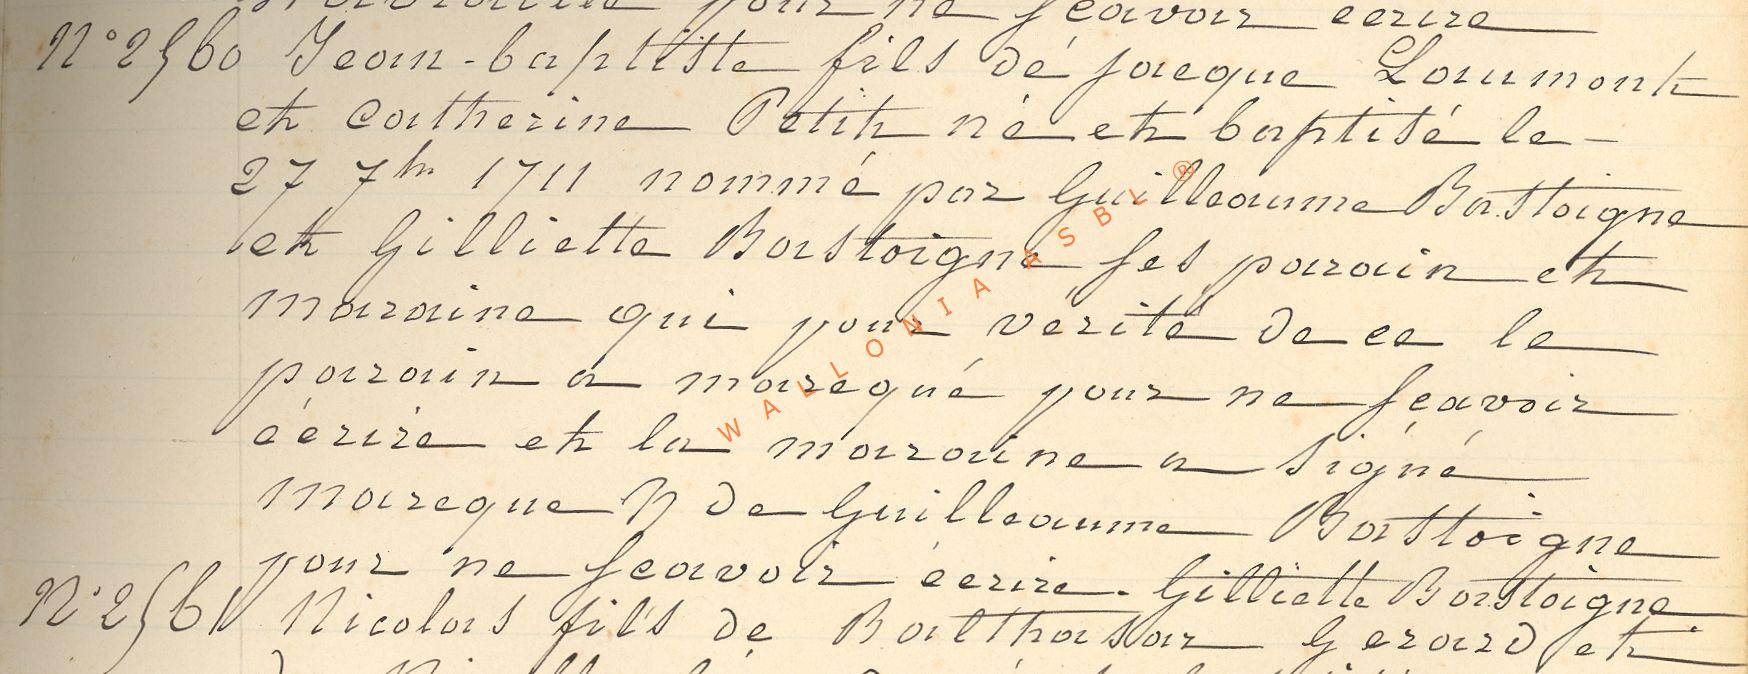 pour ne sçavoir ecrire
N° 2560 Jean-baptiste fils de jacque Laumont
et catherine Petit né et baptisé le
27 7br 1711 nommé par Guilleaume Bastoigne
et Gilliette Bastoigne ses parain et
maraine qui pour vérité de ce le
parain a marcqué pour ne sçavoir
écrire et la maraine a signé
marcque de Guilleaume Bastoigne
pour ne scavoir écrire. Gilliette Bastoigne
N° 2561 Nicolas fils de Balthasar Gerard et
WALLONIA ASBL ®